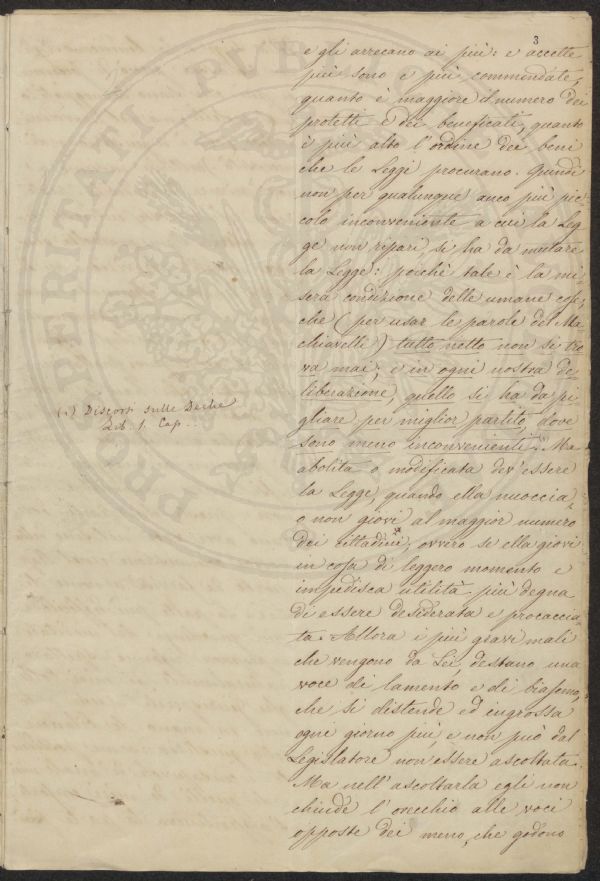 3
e gli arrecano ai più: e accette
più sono e più commendate,
quanto è maggiore il numero dei
protetti e dei beneficati, quanto
è più alto l'ordine dei beni
che le Leggi procurano. Quindi
non per qualunque anco più pic-
colo inconveniente a cui la Leg-
ge non ripari, si ha da mutare
la Legge: poichè tale è la mi-
sera condizione delle umane cose,
che (per usar le parole del Ma-
chiavelli) tutto netto non si tro-
va mai; e in ogni nostra de-
liberazione, quello si ha da pi-
gliare per miglior partito, dove
sono meno inconvenienti. Ma
abolita o modificata dev'essere
la Legge, quando ella nuoccia
o non giovi al maggior numero
dei cittadini, ovvero se ella giovi
in cosa di leggero momento e
impedisca utilità più degna
di essere desiderata e procaccia-
ta. Allora i più gravi mali
che vengono da Lei, destano una
voce di lamento e di biasimo,
che si distende ed ingrossa
ogni giorno più, e non può dal
Legislatore non essere ascoltata.
Ma nell'ascoltarla egli non
chiude l'orecchio alle voci
opposte dei meno, che godono
(1) Discorsi sulle Deche
Lib. 1. Cap. ..
PRO DIRILIATI PUBLICO